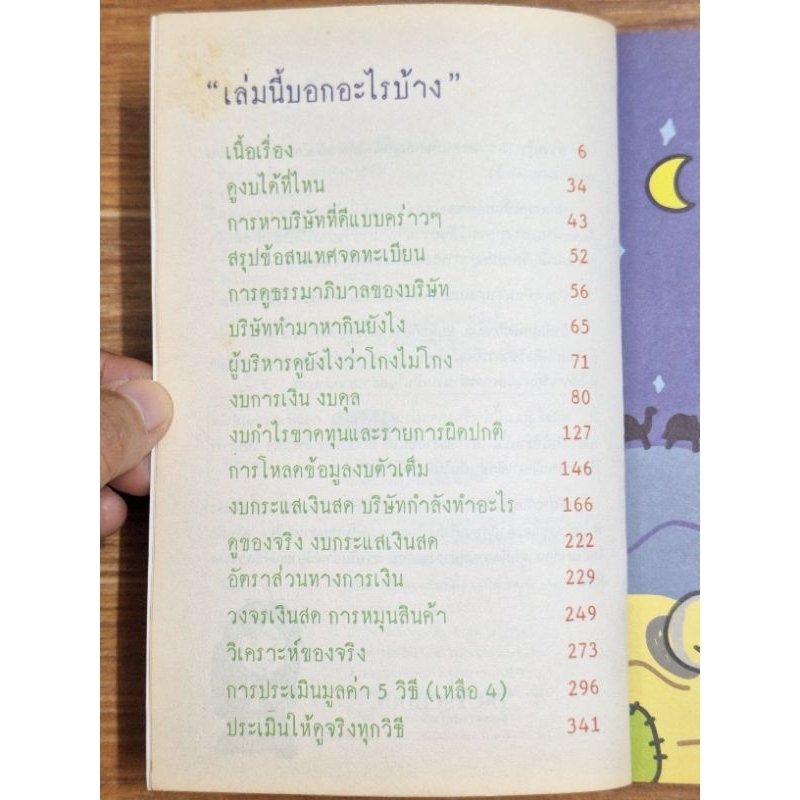 “เล่มนี้บอกอะไรบ้าง”
เนื้อเรื่อง 6
ดูงบได้ที่ไหน 34
การหาบริษัทที่ดีแบบคร่าวๆ 43
สรุปข้อสนเทศจดทะเบียน 52
การดูธรรมาภิบาลของบริษัท 56
บริษัททำมาหากินยังไง 65
ผู้บริหารดูยังไงว่าโกงไม่โกง 71
งบการเงิน งบดุล 80
งบกำไรขาดทุนและรายการผิดปกติ 127
การโหลดข้อมูลงบตัวเต็ม 146
งบกระแสเงินสด บริษัทกำลังทำอะไร 166
ดูของจริง งบกระแสเงินสด 222
อัตราส่วนทางการเงิน 229
วงจรเงินสด การหมุนสินค้า 249
วิเคราะห์ของจริง 273
การประเมินมูลค่า 5 วิธี (เหลือ 4) 296
ประเมินให้ดูจริงทุกวิธี 341